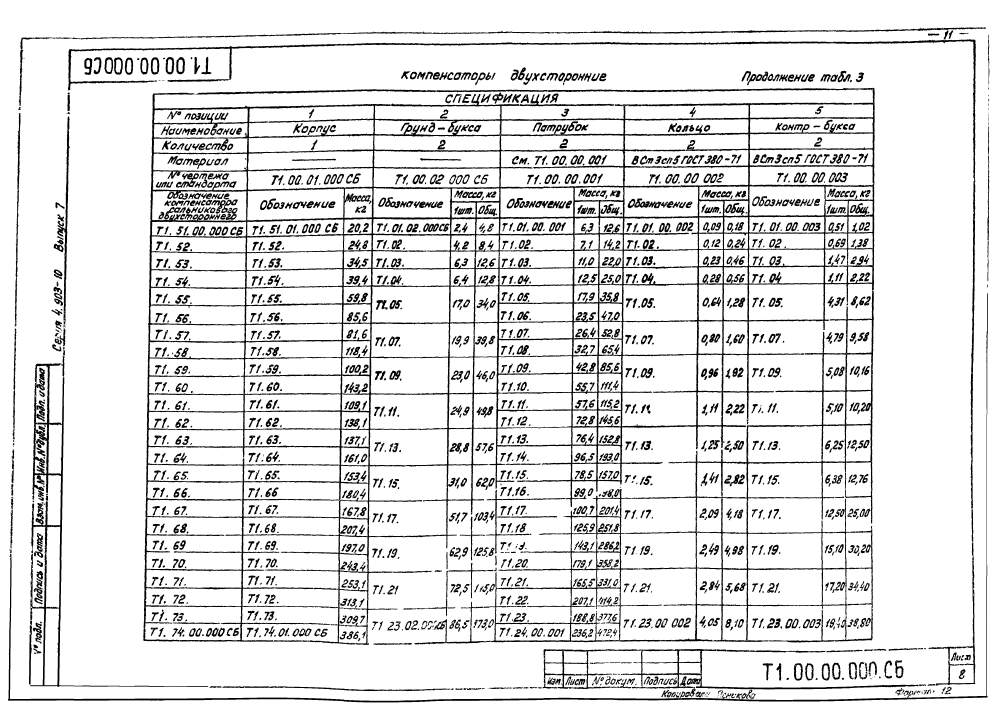 – 11 –
Т1.00.00.000СБ
Компенсаторы двухсторонние Продолжение табл. 3
СПЕЦИФИКАЦИЯ
№ позиции 1 2 3 4 5
Наименование Корпус Грунд – букса Патрубок Кольцо Контр – букса
Количество 1 2 2 2 2
Материал —— —— См. Т1.00.00.001 ВСт3сп5 ГОСТ 380-71 ВСт3сп5 ГОСТ 380-71
№ чертежа или стандарта Т1.00.01.000 СБ Т1.00.02 000 СБ Т1.00.00.001 Т1.00.00 002 Т1.00.00.003
Обозначение компенсатора сальникового двухстороннего Обозначение Масса, кг Обозначение Масса, кг 1шт. Общ. Обозначение Масса, кг 1шт. Общ. Обозначение Масса, кг 1шт. Общ. Обозначение Масса, кг 1шт. Общ.
Т1.51.00.000СБ Т1.51.01.000 СБ 20,2 Т1.01.02.000СБ 2,4 4,8 Т1.01.00.001 6,3 12,6 Т1.01.00.002 0,09 0,18 Т1.01.00.003 0,51 1,02
Т1.52. Т1.52. 24,8 Т1.02. 4,2 8,4 Т1.02. 7,1 14,2 Т1.02. 0,12 0,24 Т1.02. 0,69 1,38
Т1.53. Т1.53. 34,5 Т1.03. 6,3 12,6 Т1.03. 11,0 22,0 Т1.03. 0,23 0,46 Т1.03. 1,47 2,94
Т1.54. Т1.54. 39,4 Т1.04. 6,4 12,8 Т1.04. 12,5 25,0 Т1.04. 0,28 0,56 Т1.04 1,11 2,22
Т1.55. Т1.55. 59,8 Т1.05. 17,0 34,0 Т1.05. 17,9 35,8 Т1.05. 0,64 1,28 Т1.05. 4,31 8,62
Т1.56. Т1.56. 85,6 Т1.06. 23,5 47,0
Т1.57. Т1.57. 81,6 Т1.07. 19,9 39,8 Т1.07. 26,4 52,8 Т1.07. 0,80 1,60 Т1.07. 4,79 9,58
Т1.58 Т1.58. 118,4 Т1.08. 32,7 65,4
Т1.59. Т1.59. 100,2 Т1.09. 23,0 46,0 Т1.09. 42,8 85,6 Т1.09. 0,96 1,92 Т1.09. 5,08 10,16
Т1.60. Т1.60. 143,2 Т1.10. 55,7 111,4
Т1.61. Т1.61. 109,1 Т1.11. 24,9 49,8 Т1.11. 57,6 115,2 Т1.11. 1,11 2,22 Т1.11. 5,10 10,20
Т1.62. Т1.62. 138,1 Т1.12. 72,8 145,6
Т1.63. Т1.63. 137,1 Т1.13. 28,8 57,6 Т1.13. 76,4 152,8 Т1.13. 1,25 2,50 Т1.13. 6,25 12,50
Т1.64. Т1.64. 161,0 Т1.14. 96,5 193,0
Т1.65. Т1.65. 153,4 Т1.15. 31,0 62,0 Т1.15. 78,5 157,0 Т1.15. 1,41 2,82 Т1.15. 6,38 12,76
Т1.66. Т1.66 180,4 Т1.16. 99,0 198,0
Т1.67. Т1.67. 167,8 Т1.17. 51,7 103,4 Т1.17. 100,7 201,4 Т1.17. 2,09 4,18 Т1.17. 12,50 25,00
Т1.68. Т1.68. 207,4 Т1.18 125,9 251,8
Т1.69 Т1.69. 197,0 Т1.19. 62,9 125,8 Т1.19. 143,1 286,2 Т1.19. 2,49 4,98 Т1.19. 15,10 30,20
Т1.70. Т1.70. 243,4 Т1.20. 179,1 358,2
Т1.71. Т1.71. 253,1 Т1.21 72,5 145,0 Т1.21. 165,5 331,0 Т1.21. 2,84 5,68 Т1.21. 17,20 34,40
Т1.72. Т1.72. 313,1 Т1.22. 207,1 414,2
Т1.73. Т1.73. 309,7 Т1 23.02.000СБ 86,5 173,0 Т1.23. 188,8 377,6 Т1.23.00 002 4,05 8,10 Т1.23.00.003 19,40 38,80
Т1.74.00.000СБ Т1.74.01.000 СБ 386,1 Т1.24.00.001 236,2 472,4
Серия 4.903-10 Выпуск 7
№ подл. Подпись и дата Взам. инв.№ Инв. № дубл. Подп. и дата
Изм. Лист № докум. Подпись Дата
Т1.00.00.000.СБ
Лист
8
Копировал
Формат 12